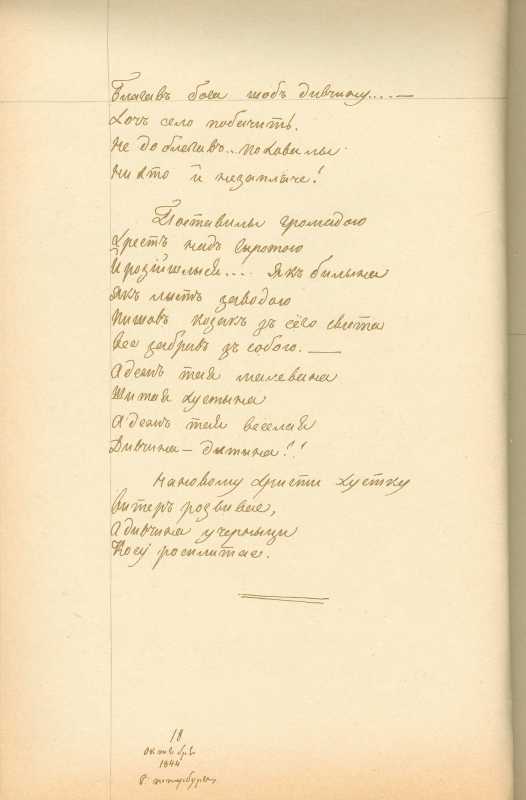 Благавъ бога щобъ дивчину....—
Хочъ село побачить.
Не до благавъ.. поховалы
Ни хто й незаплаче!
Поставылы громадою
Хрестъ надъ сыротою
Й розійшлыся.... якъ былына
Якъ лыстъ заводою
Пишовъ козакъ зъ сёго свита
Все забравъ зъ собою.—
Адежъ тая малевана
Шитая хустына
Адежъ тая веселая
Дивчина — дытына!!
Нановому христи хустку
Витеръ розвивае,
Адивчина учерныци
Косу росплитае.
18
октября
1844
С. петербургъ